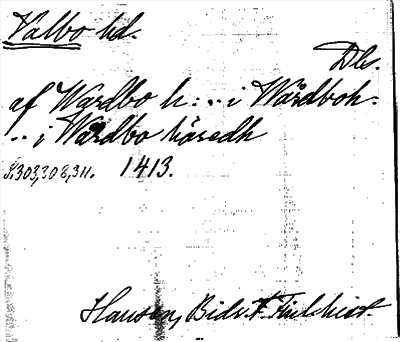 Valbo hd.
Dls.
af Wardbo h: .. i Wårdboh.
.. i Wardbo häredh
S. 303, 308, 311. 1413.
Hansen, Bids. t.